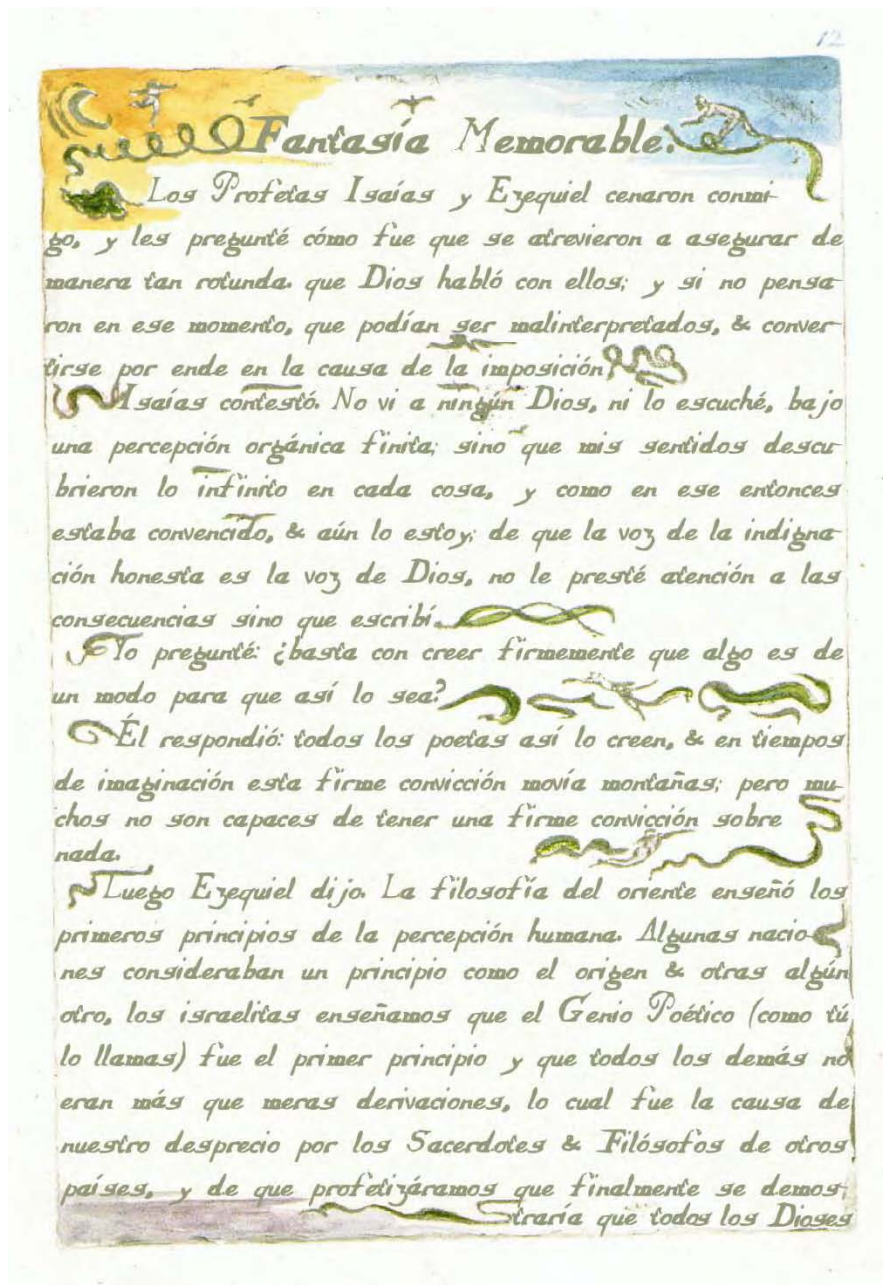 12
Fantasía Memorable.
Los Profetas Isaías y Ezequiel cenaron conmi-
go, y les pregunté cómo fue que se atrevieron a asegurar de
manera tan rotunda. que Dios habló con ellos; y si no pensa-
ron en ese momento, que podían ser malinterpretados, & conver-
tirse por ende en la causa de la imposición.
Isaías contestó. No vi a ningún Dios, ni lo escuché, bajo
una percepción orgánica finita; sino que mis sentidos descu-
brieron lo infinito en cada cosa, y como en ese entonces
estaba convencido, & aún lo estoy; de que la voz de la indigna-
ción honesta es la voz de Dios, no le presté atención a las
consecuencias sino que escribí.
Yo pregunté: ¿basta con creer firmemente que algo es de
un modo para que así lo sea?
Él respondió: todos los poetas así lo creen, & en tiempos
de imaginación esta firme convicción movía montañas; pero mu-
chos no son capaces de tener una firme convicción sobre
nada.
Luego Ezequiel dijo. La filosofía del oriente enseñó los
primeros principios de la percepción humana. Algunas nacio-
nes consideraban un principio como el origen & otras algún
otro, los israelitas enseñamos que el Genio Poético (como tú
lo llamas) fue el primer principio y que todos los demás no
eran más que meras derivaciones, lo cual fue la causa de
nuestro desprecio por los Sacerdotes & Filósofos de otros
países, y de que profetizáramos que finalmente se demos-
traría que todos los Dioses